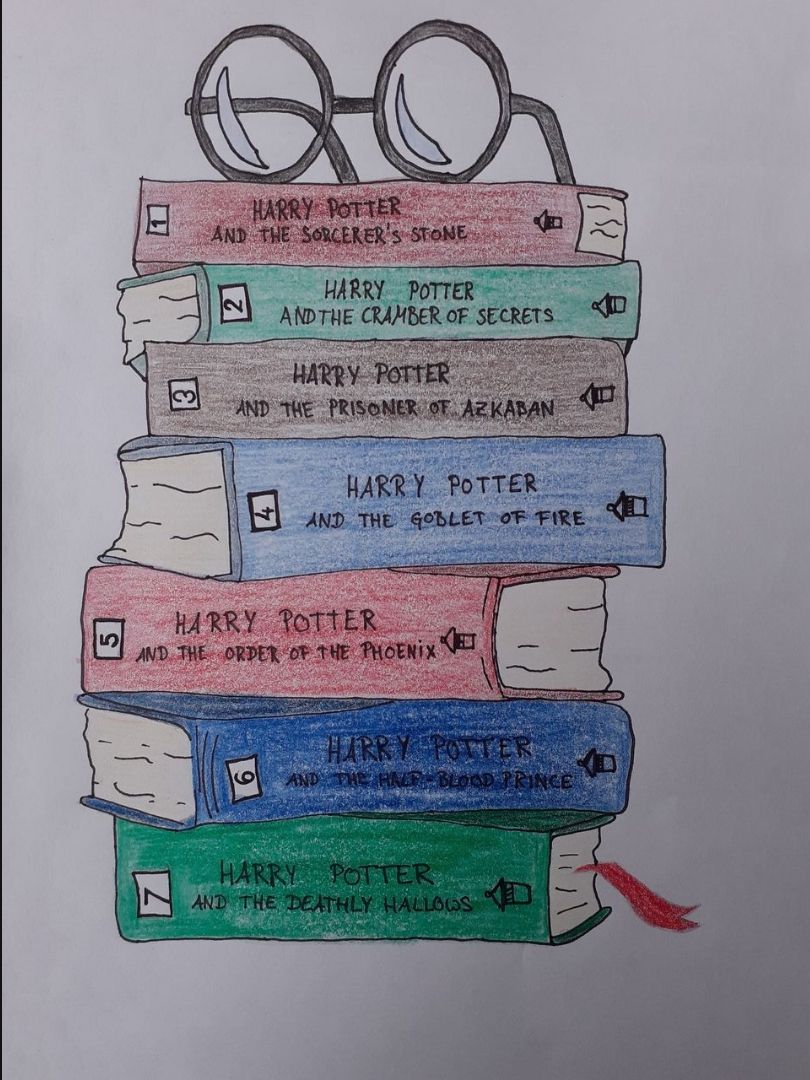 1
HARRY POTTER
AND THE SORCERER'S STONE
2
HARRY POTTER
AND THE CRAMBER OF SECRETS
3
HARRY POTTER
AND THE PRISONER OF AZKABAN
4
HARRY POTTER
AND THE GOBLET OF FIRE
5
HARRY POTTER
AND THE ORDER OF THE PHOENiX
6
HARRY POTTER
AND THE HALF-BLOOD PRINCE
7
HARRY POTTER
AND THE DEATHLY HALLOWS